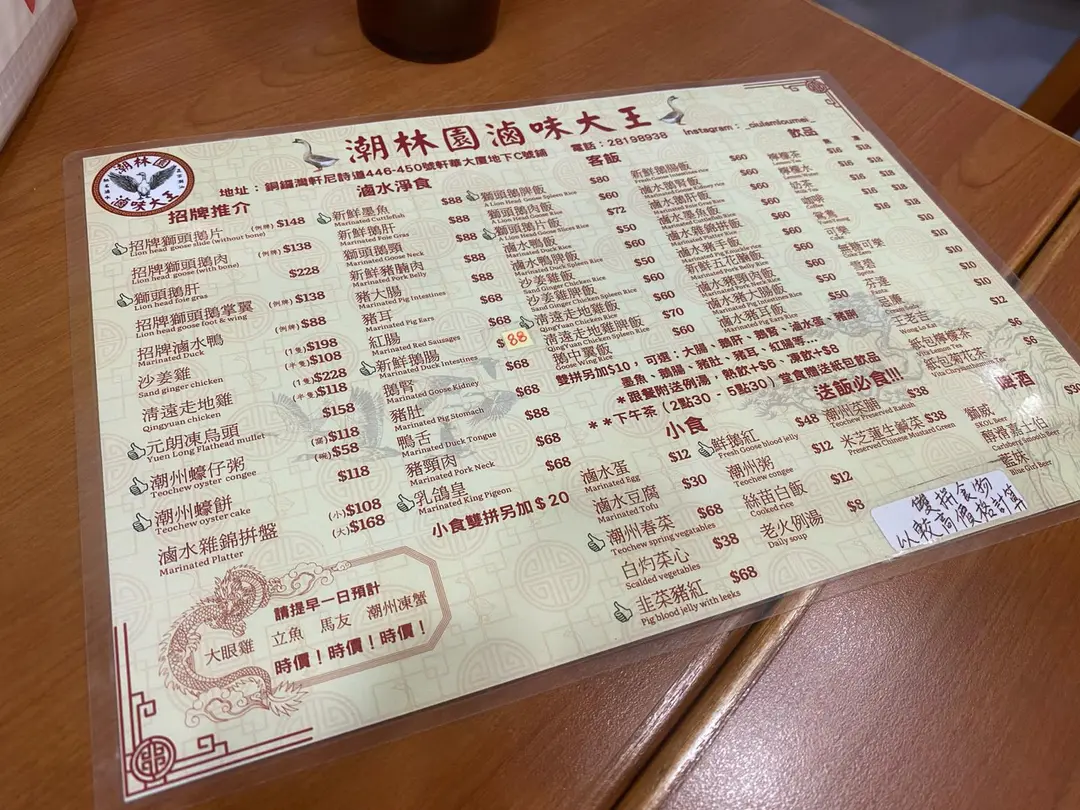 潮林園滷味大王
地址：銅鑼灣軒尼詩道446-450號軒華大廈地下C號鋪
電話：28198938
潮林園
滷味大王
招牌推介
招牌獅頭鵝片 (例牌) $148
Lion head goose slide (without bone)
招牌獅頭鵝肉 (例牌) $138
Lion head goose (with bone)
獅頭鵝肝 $228
Lion head foie gras
招牌獅頭鵝掌翼 (例牌) $138
Lion head goose foot & wing
招牌滷水鴨 (例牌) $88
Marinated Duck
沙姜雞 (1隻) $198 (半隻) $108
Sand ginger chicken
清遠走地雞 (1隻) $228 (半隻) $118
Qingyuan chicken
元朗凍烏頭 $158
Yuen Long Flathead mullet
潮州蠔仔粥 (窩) $118 (碗) $58
Teochew oyster congee
潮州蠔餅 $118
Teochew oyster cake
滷水雜錦拼盤 (小) $108 (大) $168
Marinated Platter
滷水淨食
新鮮墨魚 $88
Marinated Cuttlefish
新鮮鵝肝
Marinated Foie Gras
獅頭鵝頸 $88
Marinated Goose Neck
新鮮豬腩肉 $88
Marinated Pork Belly
豬大腸 $88
Marinated Pig Intestines
豬耳 $68
Marinated Pig Ears
紅腸 $68
Marinated Red Sausages
新鮮鵝腸 88
Marinated Duck Intestines
鵝腎 $68
Marinated Goose Kidney
豬肚 $68
Marinated Pig Stomach
鴨舌 $88
Marinated Duck Tongue
豬頸肉 $68
Marinated Pork Neck
乳鴿皇 $68
Marinated King Pigeon
小食雙拼另加$20
客飯
獅頭鵝髀飯 $80
A Lion Head Goose Spleen Rice
獅頭鵝肉飯 $60
A Lion Head Goose Rice
獅頭鵝片飯 $72
A Lion Head Goose Slices Rice
滷水鴨飯 $50
Marinated Duck Rice
滷水鴨髀飯 $60
Marinated Duck Spleen Rice
沙姜雞飯 $50
Sand Ginger Chicken Rice
沙姜雞髀飯 $60
Sand Ginger Chicken Spleen Rice
清遠走地雞飯 $60
QingYuan Chicken Rice
清遠走地雞髀飯 $70
QingYuan Chicken Spleen Rice
鵝中翼飯 $60
Goose Wing Rice
新鮮鵝腸飯 $60
滷水鵝腎飯 $60
滷水鵝肝飯
滷水墨魚飯 $60
滷水雜錦拼飯 $60
滷水豬手飯 $60
新鮮五花腩飯
Marinated Pork Belly Rice
滷水豬頸肉飯
滷水豬大腸飯
滷水豬耳飯
Marinated Pig Ears Rice
雙拼另加$10，可選：大腸、鵝肝、鵝腎、滷水蛋、豬脷
墨魚、鵝腸、豬肚、豬耳、紅腸等...
*跟餐附送例湯，熱飲+$6、凍飲+$8
**下午茶（2點30 - 5點30）堂食贈送紙包飲品
小食
滷水蛋 $12
Marinated Egg
滷水豆腐 $30
Marinated Tofu
潮州春菜 $68
Teochew spring vegetables
白灼菜心 $38
Scalded vegetables
韭菜豬紅 $68
Pig blood jelly with leeks
鮮鵝紅 $48
Fresh Goose blood jelly
潮州粥 $12
Teochew congee
絲苗白飯 $12
Cooked rice
老火例湯 $8
Daily soup
送飯必食!!!
潮州菜脯 $38
Teochew Preserved Radish
米芝蓮生鹹菜 $38
Preserved Chinese Mustard Green
飲品
檸檬茶 $16 $18
檸檬水 $16 $18
奶茶 $16 $18
咖啡 $16 $18
鴛鴦
可樂 $10
Coke
無糖可樂 $10
Coke Zero
雪碧 $10
Sprite
芬達 $10
Fanta
忌廉
王老吉 $12
Wong Lo Kat
紙包檸檬茶 $6
Vita Lemon Tea
紙包菊花茶 $6
Vita Chrysanthemum Tea
啤酒
獅威
SKOL Beer
醇滑嘉士伯
Carlsberg Smooth Beer
藍妹
Blue Girl Beer
雙拼食物
以較高價格計算
請提早一日預計
大眼雞 立魚 馬友 潮州凍蟹
時價！時價！時價！